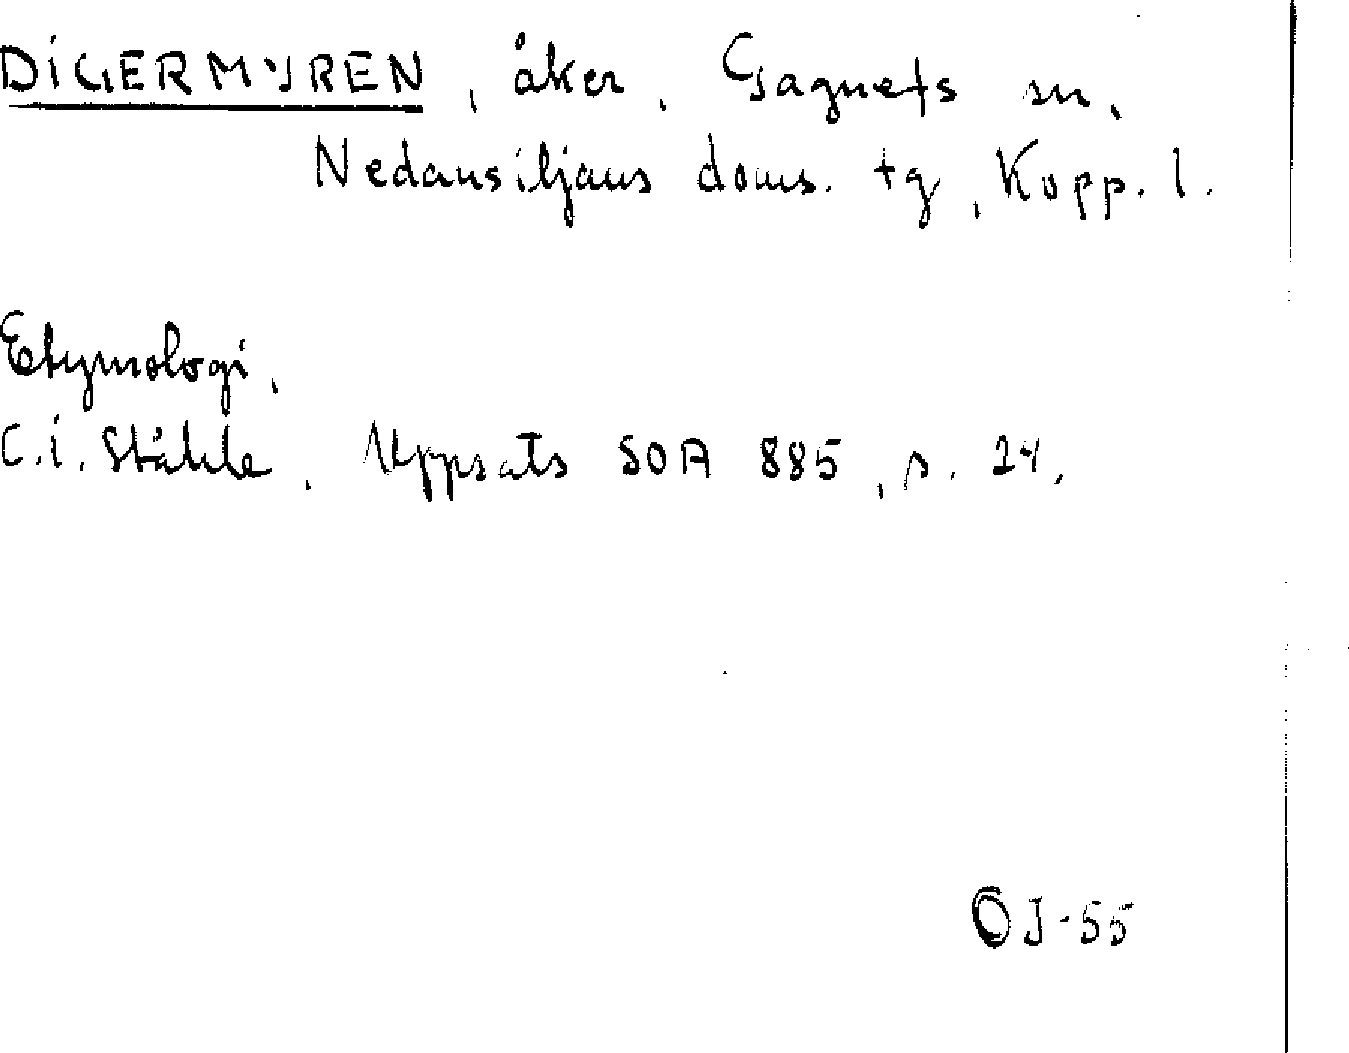 DIGERMYREN, åker, Gagnefs sn,
Nedansiljans doms. tg, Kopp. l.
Etymologi,
C.I. Ståhle, Uppsats SOA 885, s. 24.
OJ-55